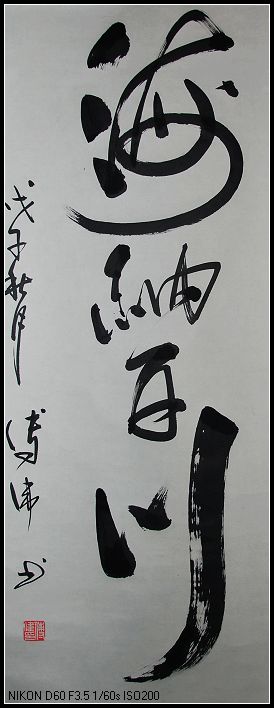 海纳百川
戊子秋月 傅伟 书
NIKON D60 F3.5 1/60s ISO200